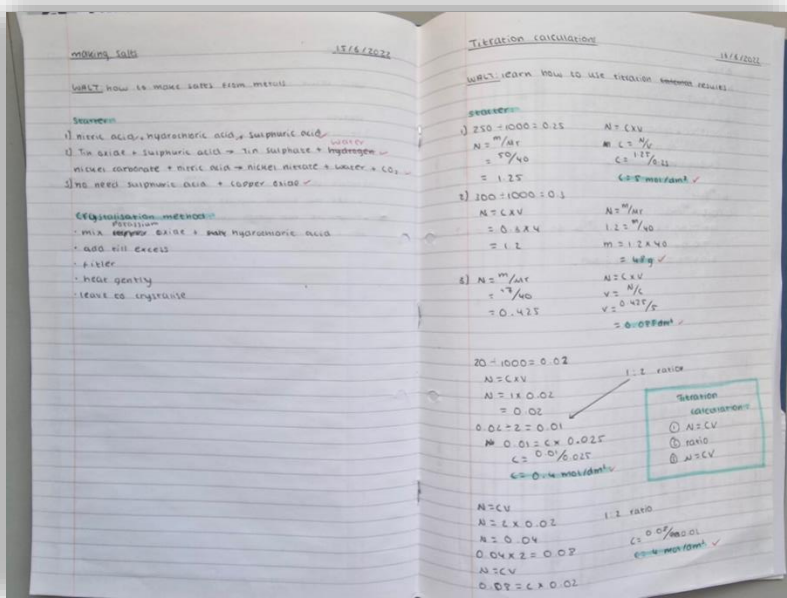 making salts
15/6/2022
WALT: how to make salts from metals
Starter:
1) nitric acid, hydrochloric acid, sulphuric acid
water
2) Tin oxide + sulphuric acid → Tin sulphate + hydrogen
nickel carbonate + nitric acid → nickel nitrate + water + CO₂
3) no need sulphuric acid + copper oxide
Crystalisation method:
potassium
· mix oxide + hydrochloric acid
· add till excess
· filter
· heat gently
· leave to crystalise
Titration calculations
16/6/2022
WALT: learn how to use titration results
starter:
1) 250 ÷ 1000 = 0.25
N = m/Mr
= 50/40
= 1.25
N = C×V
C = N/V
C = 1.25/0.25
C = 5 mol/dm³
2) 300 ÷ 1000 = 0.3
N = C×V
= 0.3 × 4
= 1.2
N = m/Mr
1.2 = m/40
m = 1.2 × 40
= 48g
3) N = m/Mr
= 17/40
= 0.425
N = C×V
V = N/C
V = 0.425/5
= 0.085dm³
20 ÷ 1000 = 0.02
N = C×V
N = 1 × 0.02
= 0.02
0.02 ÷ 2 = 0.01
0.01 = C × 0.025
C = 0.01/0.025
C = 0.4 mol/dm³
1:2 ratio
Titration
calculations:
① N=CV
② ratio
③ N=CV
N = CV
N = 2 × 0.02
N = 0.04
0.04 × 2 = 0.08
N = CV
0.08 = C × 0.02
1:2 ratio
C = 4 mol/dm³